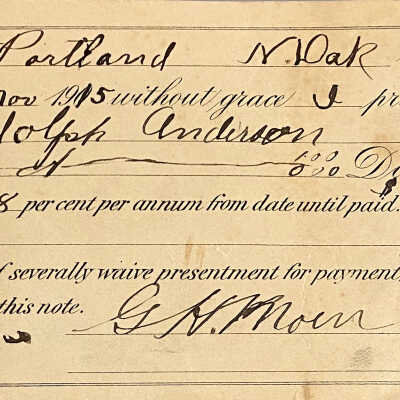 Portland N. Dak
Nov 1915 without grace I pr
dolph Anderson
000 D
8 per cent per annum from date until paid.
f severally waive presentment for payment,
this note.
G H. Moen